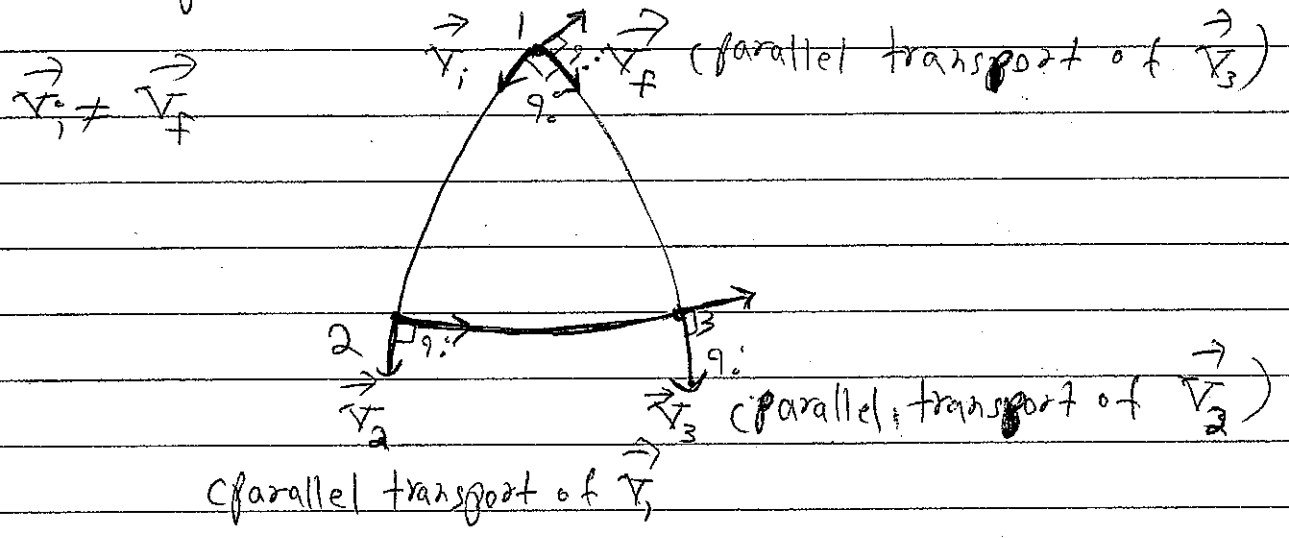 1
V⃗i V⃗f (parallel transport of V⃗3)
V⃗i ≠ V⃗f
90
2 90 3
90
V⃗2 V⃗3 (parallel transport of V⃗2)
(parallel transport of V⃗i